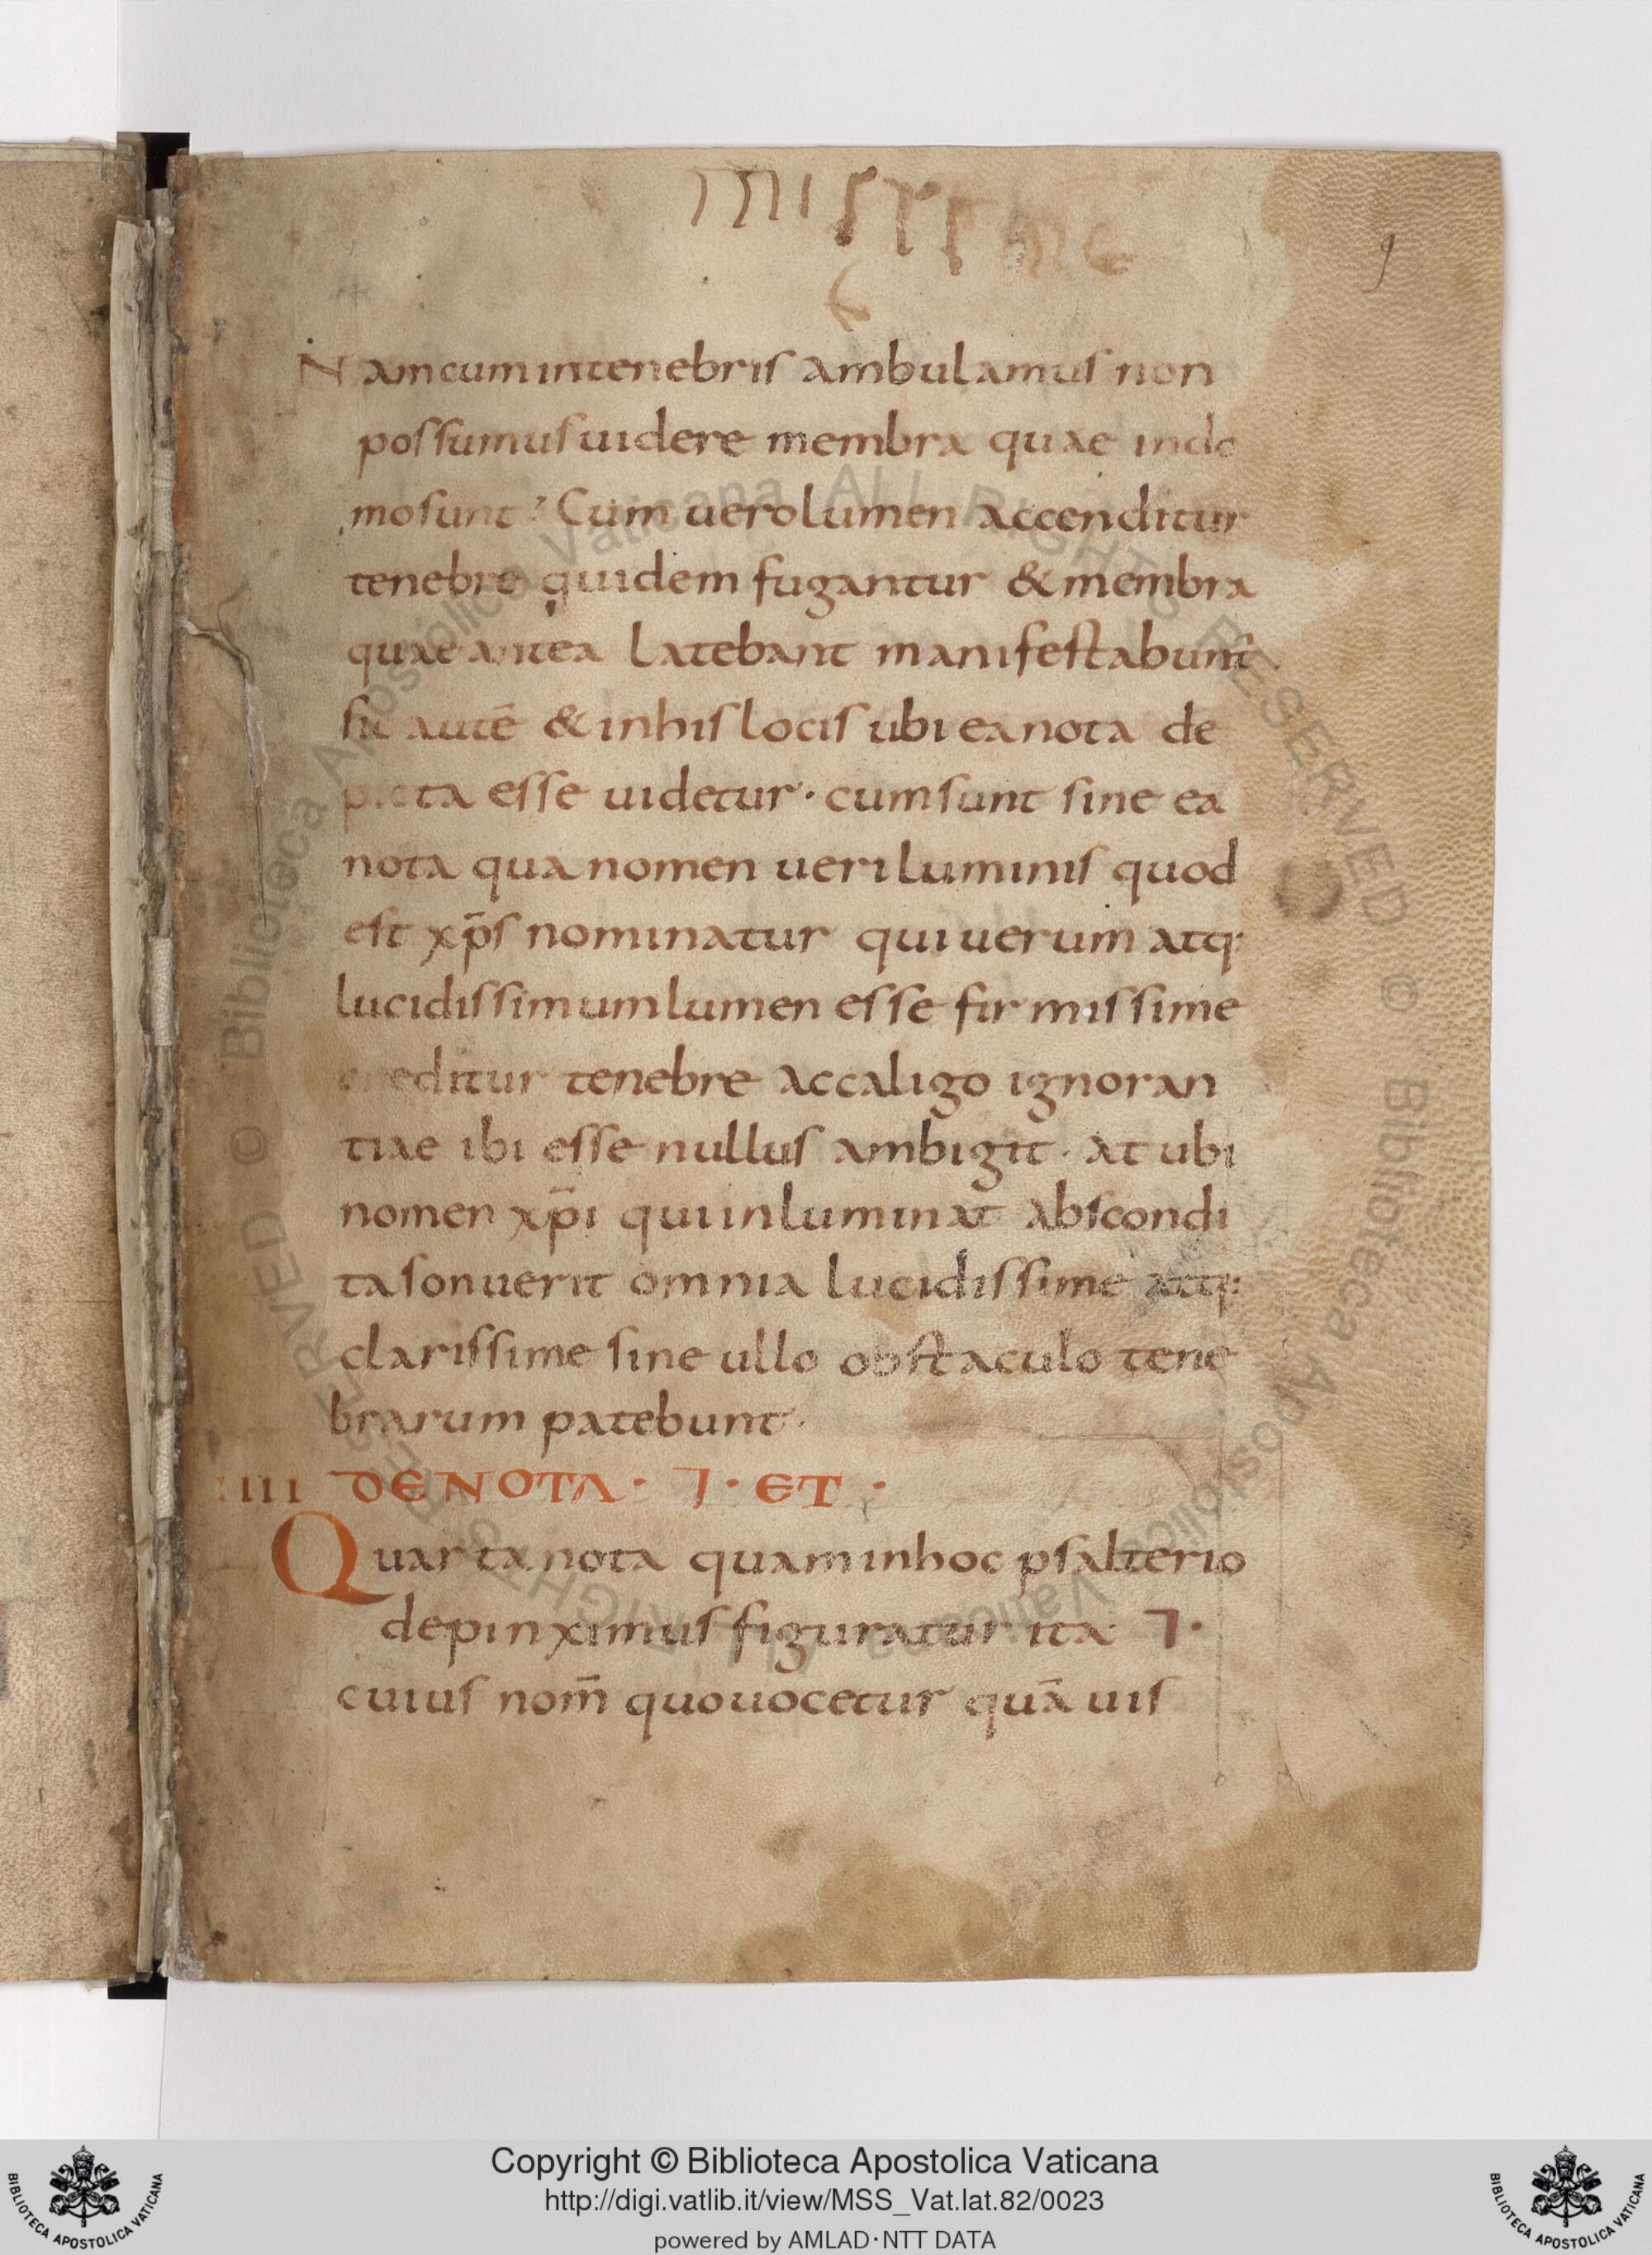 9
Nam cum in tenebris ambulamus non
possumus uidere membra quae in do
mo sunt? Cum uero lumen accenditur
tenebre quidem fugantur & membra
quae antea latebant manifestabunt
sic autē & in his locis ubi ea nota de
picta esse uidetur· cum sunt sine ea
nota qua nomen ueri luminis quod
est xp̄s nominatur qui uerum atq:
lucidissimum lumen esse firmissime
creditur tenebre ac caligo ignoran
tiae ibi esse nullus ambigit· at ubi
nomen xp̄i qui inluminat abscondi
ta sonuerit omnia lucidissime atq:
clarissime sine ullo obstaculo tene
brarum patebunt·
IIII DE NOTA · ⁊ · ET ·
Quarta nota quam in hoc psalterio
depinximus figuratur ita ⁊·
cuius nom̄ quo uocetur quā uis
Copyright © Biblioteca Apostolica Vaticana
http://digi.vatlib.it/view/MSS_Vat.lat.82/0023
powered by AMLAD·NTT DATA
BIBLIOTECA APOSTOLICA VATICANA
BIBLIOTECA APOSTOLICA VATICANA